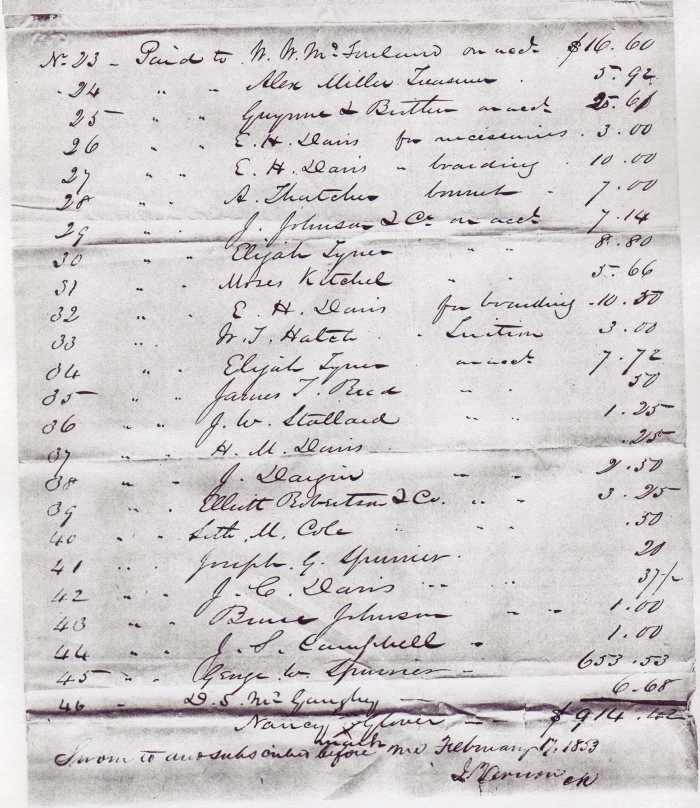 No 23 - Paid to W. W. McFarland on acct $16.60
24 " " Alex Miller Treasurer 5.92
25 " " Gwynne & Butler on acct 25.61
26 " " E. H. Davis for necessaries . 3.00
27 " " E. H. Davis " boarding . 10.00
28 " " A. Thatcher bonnet - 7.00
29 " " J. Johnson & Co on acct 7.14
30 " " Elijah Tyner " " 8.80
31 " " Moses Kitchel " " 5.66
32 " " E. H. Davis for boarding - 10.50
33 " " W. T. Hatch . Tuition 3.00
34 " " Elijah Tyner on acct 7.72
35 " " James T. Reed " " 50
36 " " J. W. Stallard " " 1.25
37 " " H. M. Davis .25
38 " " J. " " 2.50
39 " " Elliott Robertson & Co. " " 3.25
40 " " Seth M. Cole " " .50
41 " " Joseph G. Spurrier . 20
42 " " J. C. Davis " " 37 1/2
43 " " Johnson " " 1.00
44 " " J. S. Campbell " 1.00
45 " " George W. Spurrier - 653.53
46 " D. S. McGaughey - 6.68
Nancy Glover - - $914.
mark
Sworn to and subscribed before me February 17, 1853
J. Vernon Clk